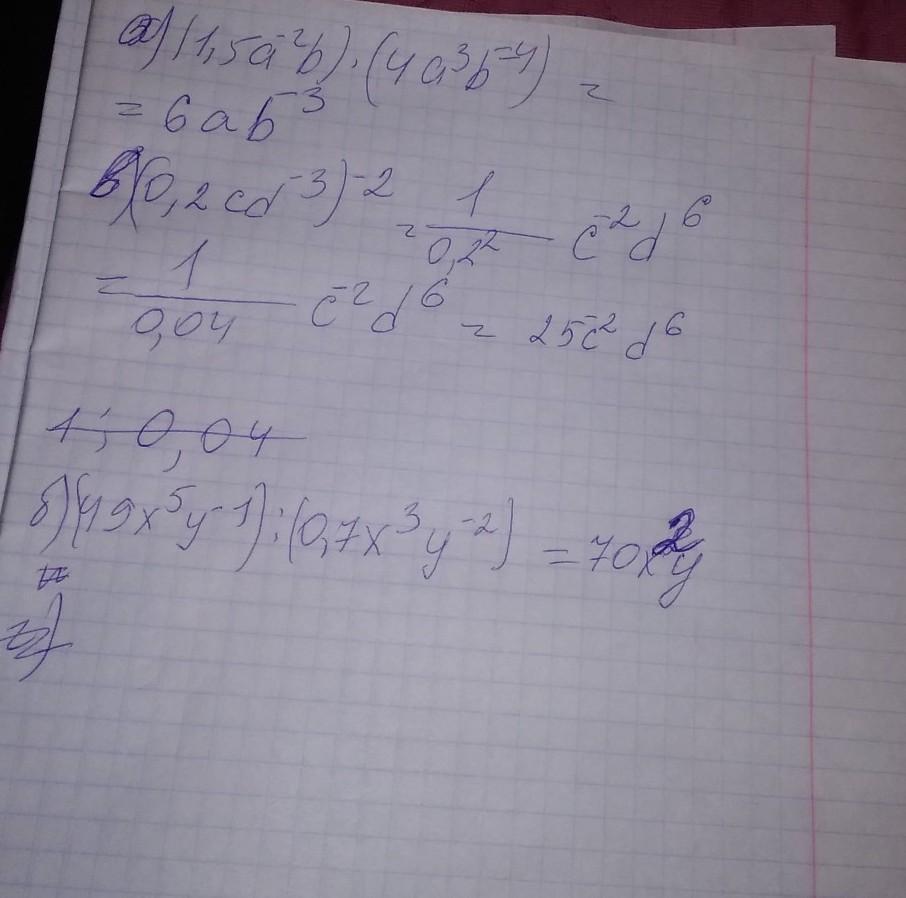 а) (1,5a⁻²b) · (4a³b⁻⁴) =
= 6ab⁻³
в) (0,2cd⁻³)⁻² = 1/0,2² c⁻²d⁶
= 1/0,04 c⁻²d⁶ = 25c⁻²d⁶
1 : 0,04
б) (49x⁵y⁻¹) : (0,7x³y⁻²) = 70x²y